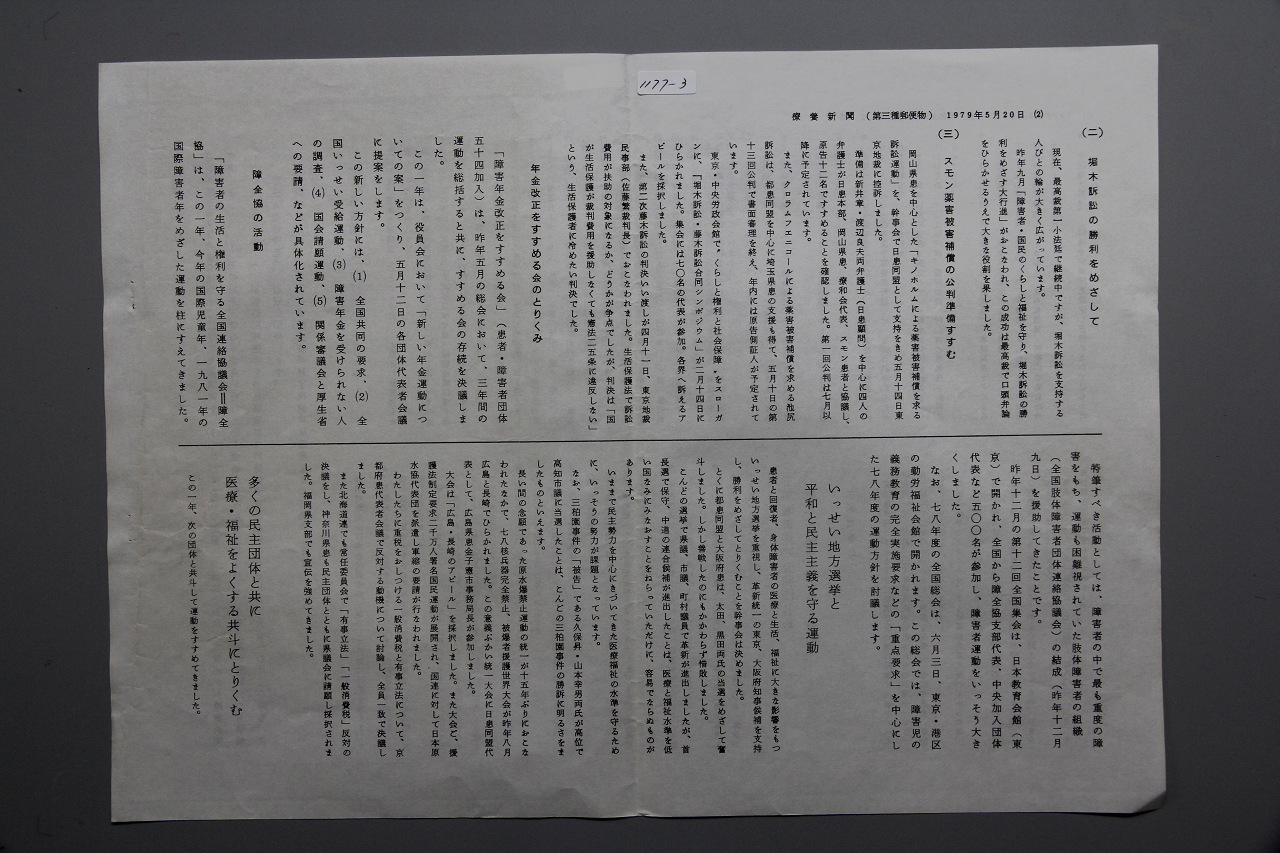 1177-3
療養新聞 (第三種郵便物) 1979年5月20日 (2)
(二) 堀木訴訟の勝利をめざして
現在、最高裁第一小法廷で継続中ですが、堀木訴訟を支持する
人びとの輪が大きく広がっています。
昨年九月「障害者・国民のくらしと福祉を守り、堀木訴訟の勝
利をめざす大行進」がおこなわれ、この成功は最高裁で口頭弁論
をひらかせるうえで大きな役割を果しました。
(三) スモン薬害被害補償の公判準備すすむ
岡山県患を中心とした「キノホルムによる薬害被害補償を求る
訴訟運動」を、幹事会で日患同盟として支持をきめ五月十四日東
京地裁に控訴しました。
準備は新井章・渡辺良夫両弁護士(日患顧問)を中心に四人の
弁護士が日患本部、岡山県患、療和会代表、スモン患者と協議し、
原告十二名ですすめることを確認しました。第一回公判は七月以
降に予定されています。
また、クロラムフェニコールによる薬害被害補償を求める池尻
訴訟は、都患同盟を中心に埼玉県患の支援も得て、五月十日の第
十三回公判で書面審理を終え、年内には原告側証人が予定されて
います。
東京・中央労政会館で〝くらしと権利と社会保障〟をスローガ
ンに、「堀木訴訟・藤木訴訟合同シンポジウム」が二月十四日に
ひらかれました。集会には七〇名の代表が参加。各界へ訴えるア
ピールを採択しました。
また、第二次藤木訴訟の判決いい渡しが四月十一日、東京地裁
民事部(佐藤繁裁判長)でおこなわれました。生活保護法で訴訟
費用が扶助の対象になるか、どうかが争点でしたが、判決は「国
が生活保護が裁判費用を援助しなくても憲法二五条に違反しない」
という、生活保護者に冷めたい判決でした。
年金改正をすすめる会のとりくみ
「障害年金改正をすすめる会」(患者・障害者団体
五十四加入)は、昨年五月の総会において、三年間の
運動を総括すると共に、すすめる会の存続を決議しま
した。
この一年は、役員会において「新しい年金運動につ
いての案」をつくり、五月十二日の各団体代表者会議
に提案をします。
この新しい方針には、(1) 全国共同の要求、(2) 全
国いっせい受給運動、(3) 障害年金を受けられない人
の調査、(4) 国会請願運動、(5) 関係審議会と厚生省
への要請、などが具体化されています。
障全協の活動
「障害者の生活と権利を守る全国連絡協議会=障全
協」は、この一年、今年の国際児童年、一九八一年の
国際障害者年をめざした運動を柱にすえてきました。
特筆すべき活動としては、障害者の中で最も重度の障
害をもち、運動も困難視されていた肢体障害者の組織
(全国肢体障害者団体連絡協議会)の結成(昨年十二月
九日)を援助してきたことです。
昨年十二月の第十二回全国集会は、日本教育会館(東
京)で開かれ、全国から障全協支部代表、中央加入団体
代表など五〇〇名が参加し、障害者運動をいっそう大き
くしました。
なお、七八年度の全国総会は、六月三日、東京・港区
の勤労福祉会館で開かれます。この総会では、障害児の
義務教育の完全実施要求などの「重点要求」を中心にし
た七八年度の運動方針を討議します。
いっせい地方選挙と
平和と民主主義を守る運動
患者と回復者、身体障害者の医療と生活、福祉に大きな影響をもつ
いっせい地方選挙を重視し、革新統一の東京、大阪府知事候補を支持
し、勝利をめざしてとりくむことを幹事会は決めました。
とくに都患同盟と大阪府患は、太田、黒田両氏の当選をめざして奮
斗しました。しかし善戦したのにもかかわらず惜敗しました。
こんどの選挙で県議、市議、町村議員で革新が進出しましたが、首
長選で保守、中道の連合候補が進出したことは、医療と福祉水準を低
い国なみにみなおすことをねらっていただけに、容易でならぬものが
あります。
いままで民主勢力を中心にきづいてきた医療福祉の水準を守るため
に、いっそうの努力が課題となっています。
なお、三柏園事件の「被告」である久保昇・山本幸男両氏が高位で
高知市議に当選したことは、こんどの三柏園事件の勝訴に明るさをま
したものといえます。
長い間の念願であった原水爆禁止運動の統一が十五年ぶりにおこな
われたなかで、七八核兵器完全禁止、被爆者援護世界大会が昨年八月
広島と長崎でひらかれました。この意義ぶかい統一大会に日患同盟代
表として、広島県患金子憲市事務局長が参加しました。
大会は「広島・長崎のアピール」を採択しました。また大会ど、援
護法制定要求二千万人署名国民運動が展開され、国連に対して日本原
水協代表団を派遣し軍縮の要請が行なわれました。
わたしたちに重税をおしつける一般消費税と有事立法について、京
都府患代表者会議で反対する動機について討論し、全員一致で決議し
ました。
また北海道連でも常任委員会で「有事立法」「一般消費税」反対の
決議をし、神奈川県患も民主団体とともに県議会に請願し採択されま
した。福岡県支部でも宣伝を強めてきました。
多くの民主団体と共に
医療・福祉をよくする共斗にとりくむ
この一年、次の団体と共斗して運動をすすめてきました。